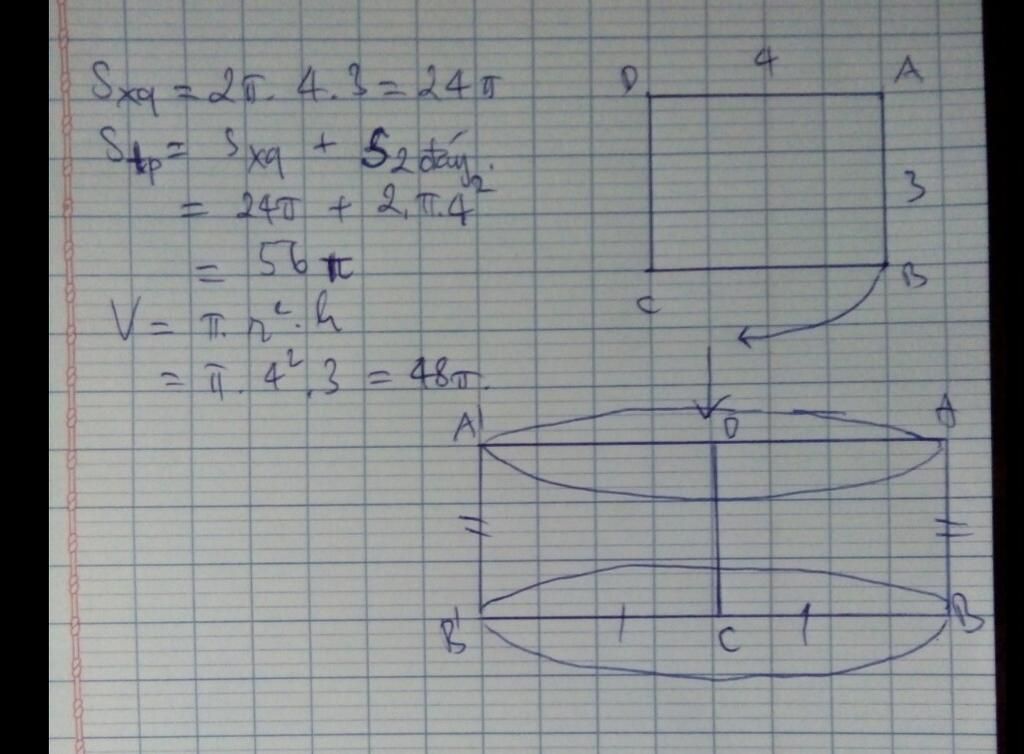 Sxq = 2π. 4. 3 = 24π
Stp = Sxq + S2 đáy.
= 24π + 2.π.4²
= 56π
V = π.r².h
= π.4².3 = 48π.
4
D
A
3
B
C
A'
D
A
B'
C
B